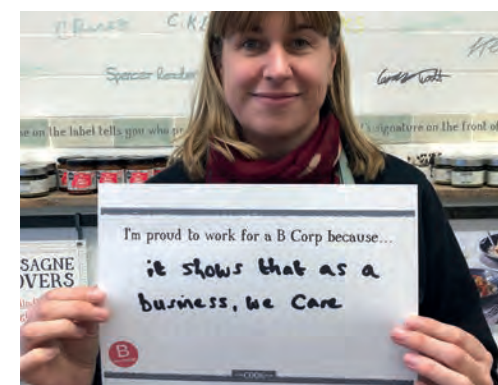 Spencer Reader
me on the label tells you who pr
's signature on the front of
I'm proud to work for a B Corp because...
it shows that as a
business, we care
SAGNE
OVERS
B
COOK